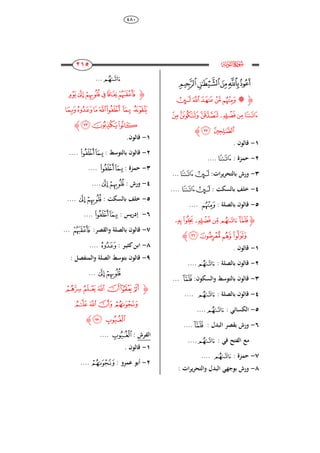 ٤٨٠
٢٦٥
أَعُوذُ بِاللَّهِ مِنَ الشَّيْطَٰنِ الرَّجِيمِ
﴿ ۞ وَمِنْهُم مَّنْ عَٰهَدَ اللَّهَ لَئِنْ
ءَاتَىٰنَا مِن فَضْلِهِۦ لَنَصَّدَّقَنَّ وَلَنَكُونَنَّ مِنَ
الصَّٰلِحِينَ ﴾
١- قالون .
٢- حمزة : ءَاتَىٰنَا ....
٣- ورش بالتحريرات: لَئِنْ ءَاتَىٰنَا ...
٤- خلف بالسكت : لَئِنْ ءَاتَىٰنَا ....
٥- قالون بالصلة : وَمِنْهُم ....
﴿ فَلَمَّا ءَاتَىٰهُم مِّن فَضْلِهِۦ بَخِلُوا بِهِۦ
وَتَوَلَّوا وَّهُم مُّعْرِضُونَ ﴾
١- قالون .
٢- قالون بالصلة : ءَاتَىٰهُم ....
٣- قالون بالتوسط والسكون: فَلَمَّا ...
٤- قالون بالصلة : ءَاتَىٰهُم ....
٥- الكسائي : ءَاتَىٰهُم ....
٦- ورش بقصر البدل : فَلَمَّا ....
مع الفتح في : ءَاتَىٰهُم ....
٧- حمزة : ءَاتَىٰهُم ....
٨- ورش بوجهي البدل والتحريرات :
ءَاتَىٰهُم ...
﴿ فَأَعْقَبَهُمْ نِفَاقًا فِي قُلُوبِهِمْ إِلَىٰ يَوْمِ
يَلْقَوْنَهُ بِمَا أَخْلَفُوا اللَّهَ مَا وَعَدُوهُ وَبِمَا
كَانُوا يَكْذِبُونَ ﴾
١- قالون.
٢- قالون بالتوسط : بِمَا أَخْلَفُوا ....
٣- حمزة : بِمَا أَخْلَفُوا ....
٤- ورش : قُلُوبِهِمْ إِلَىٰ ....
٥- خلف بالسكت : قُلُوبِهِمْ إِلَىٰ ....
٦- إدريس : بِمَا أَخْلَفُوا ....
٧- قالون بالصلة والقصر: فَأَعْقَبَهُمْ ....
٨- ابن كثير : وَعَدُوهُ ....
٩- قالون بتوسط الصلة والمنفصل :
قُلُوبِهِمْ إِلَىٰ ....
﴿ أَلَمْ يَعْلَمُوا أَنَّ اللَّهَ يَعْلَمُ سِرَّهُمْ
وَنَجْوَىٰهُمْ وَأَنَّ اللَّهَ عَلَّٰمُ
الْغُيُوبِ ﴾
الفرش : الْغُيُوبِ ....
١- قالون .
٢- أبو عمرو : وَنَجْوَىٰهُمْ ....